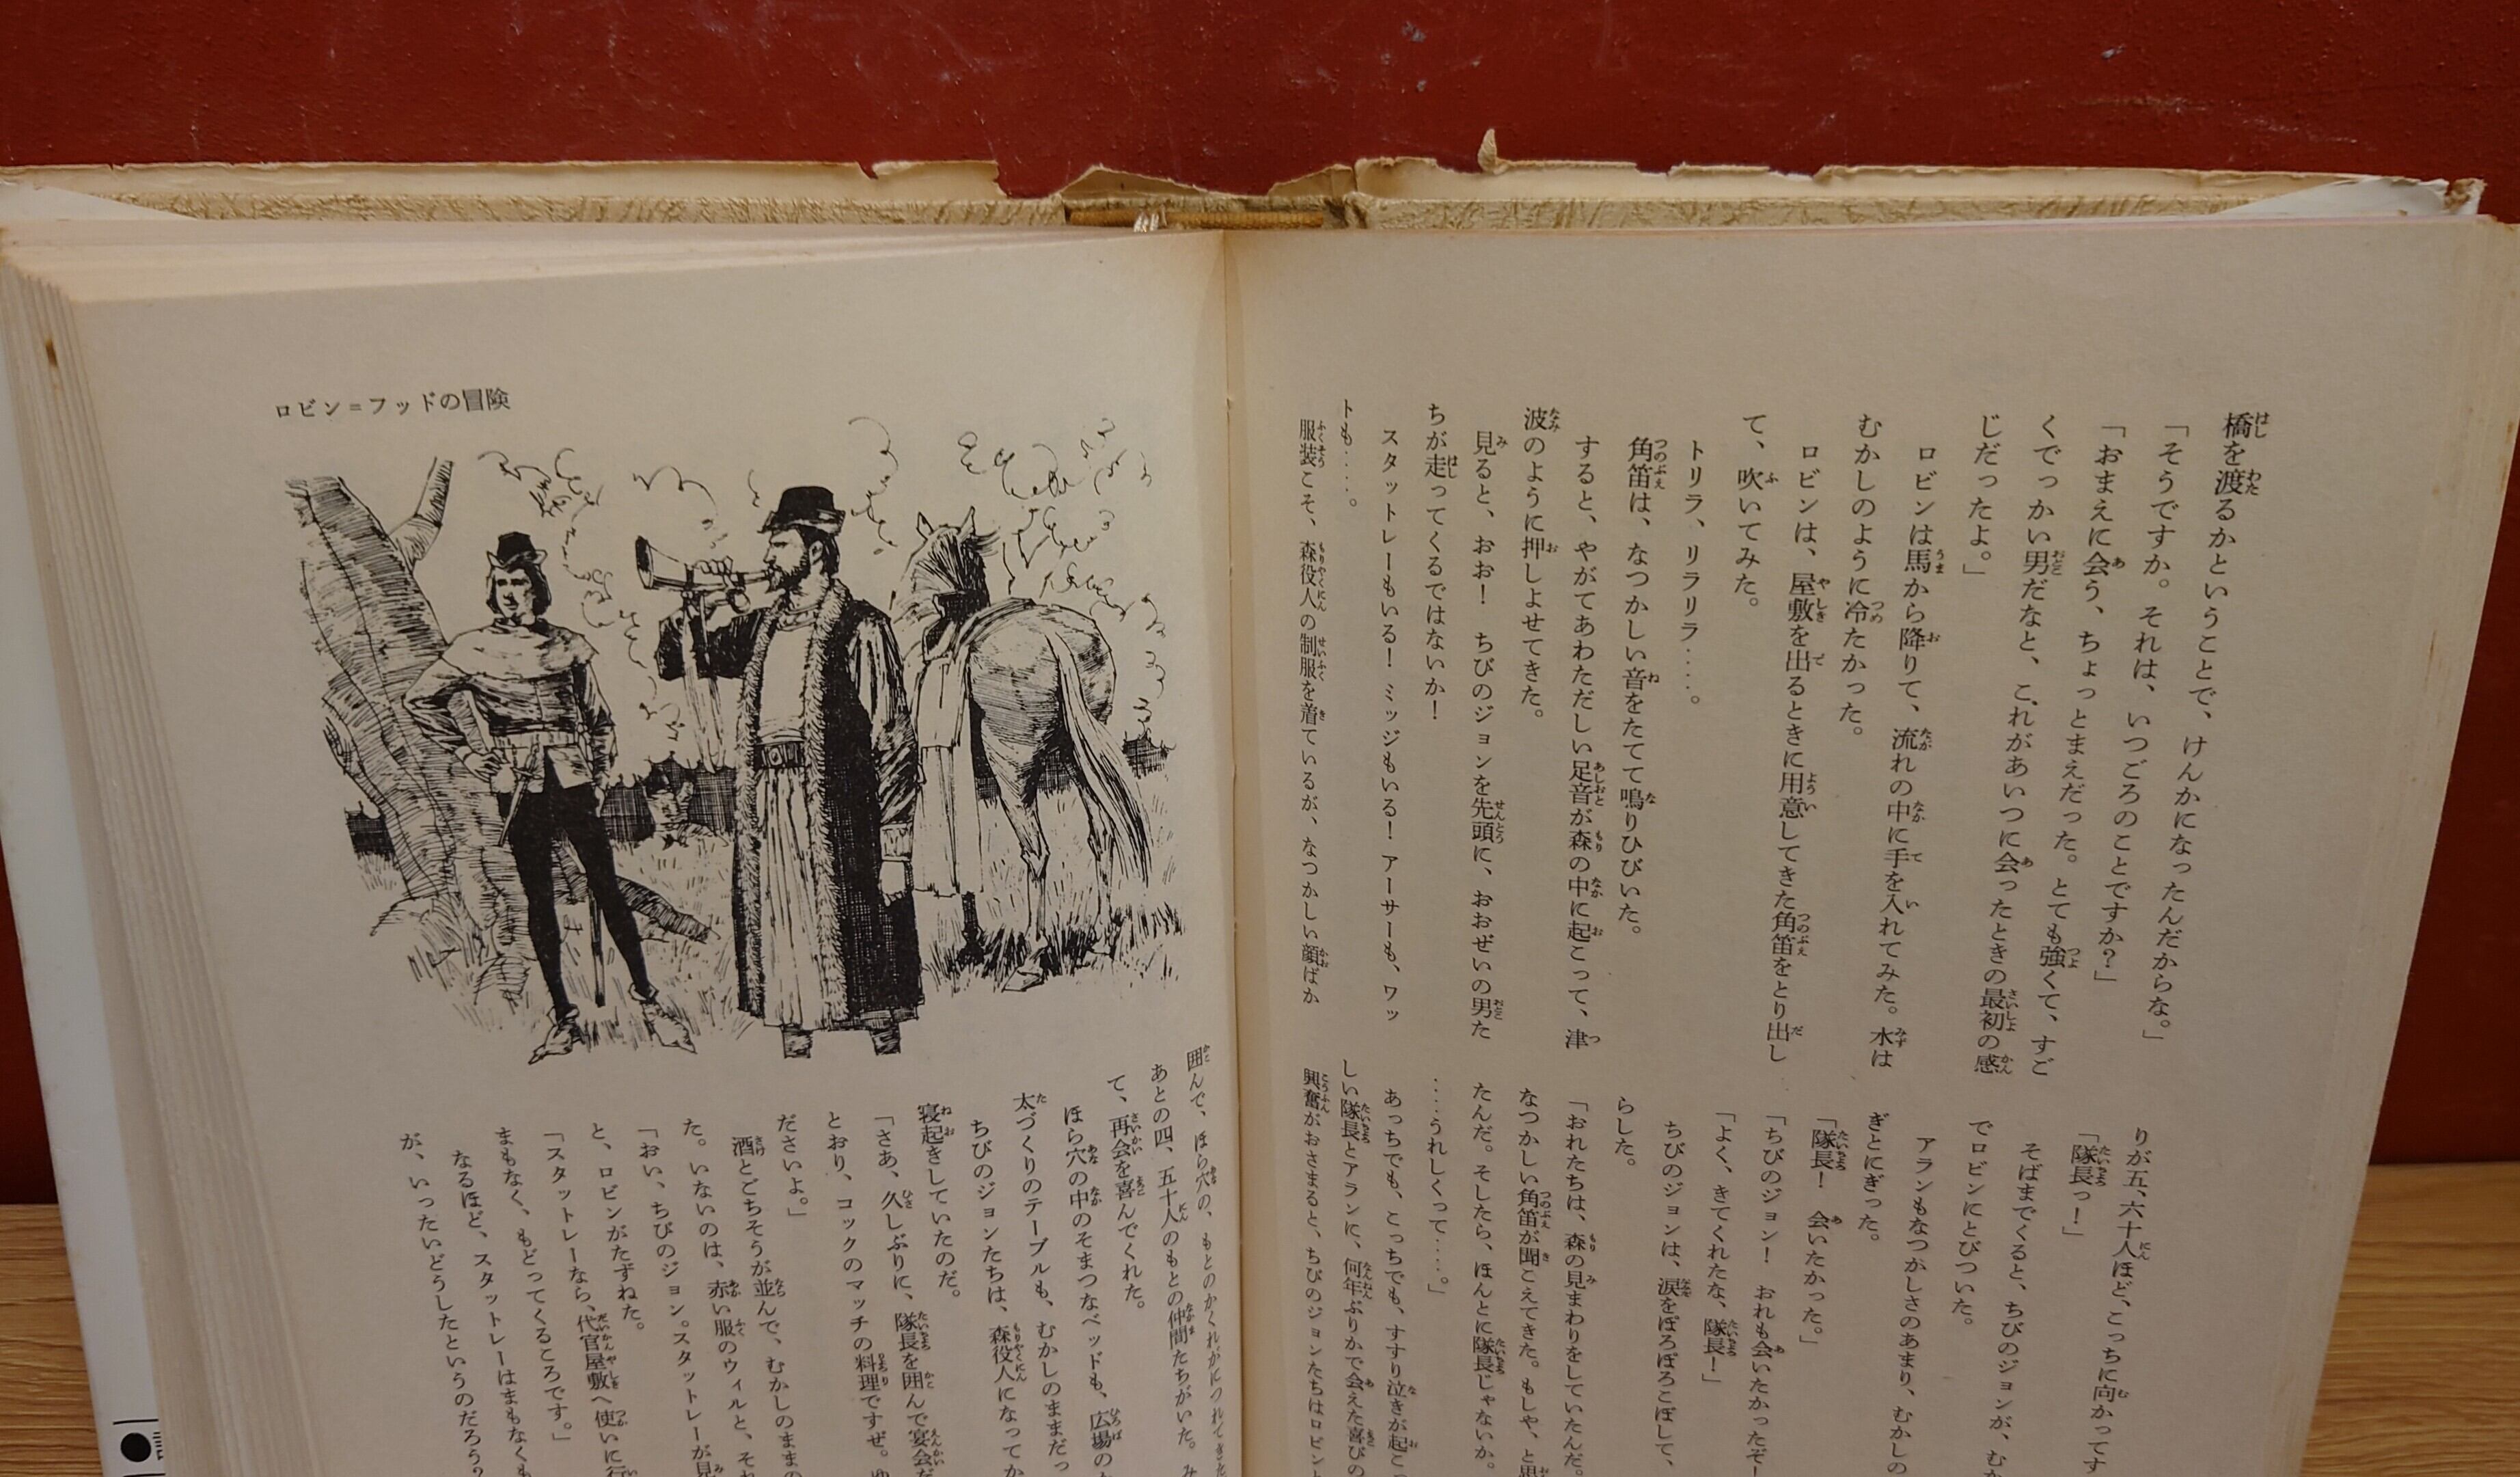 橋を渡るかということで、けんかになったんだからな。」
「そうですか。それは、いつごろのことですか?」
「おまえに会う、ちょっとまえだった。とても強くて、すご
くでっかい男だなと、これがあいつに会ったときの最初の感
じだったよ。」
ロビンは馬から降りて、流れの中に手を入れてみた。水は
むかしのように冷たかった。
ロビンは、屋敷を出るときに用意してきた角笛をとり出し
て、吹いてみた。
トリラ、リラリラ‥‥。
角笛は、なつかしい音をたてて鳴りひびいた。
すると、やがてあわただしい足音が森の中に起こって、津
波のように押しよせてきた。
見ると、おお! ちびのジョンを先頭に、おおぜいの男た
ちが走ってくるではないか!
スタットレーもいる! ミッジもいる! アーサーも、ワッ
トも‥‥。
服装こそ、森役人の制服を着ているが、なつかしい顔ばか
りが五、六十人ほど、こっちに向かってす
「隊長っ!」
そばまでくると、ちびのジョンが、
でロビンにとびついた。
アランもなつかしさのあまり、むかしの
ぎとにぎった。
「隊長! 会いたかった。」
「ちびのジョン! おれも会いたかったぞ!
「よく、きてくれたな、隊長!」
ちびのジョンは、涙をぼろぼろこぼして、
らした。
「おれたちは、森の見まわりをしていたんだ。
なつかしい角笛が聞こえてきた。もしや、と思
たんだ。そしたら、ほんとに隊長じゃないか。
‥‥うれしくって‥‥。」
あっちでも、こっちでも、すすり泣きが起こっ
しい隊長とアランに、何年ぶりかで会えた喜びの
興奮がおさまると、ちびのジョンたちはロビンと
ロビン=フッドの冒険
囲んで、ほら穴の、もとのかくれがにつれてきた
あとの四、五十人のもとの仲間たちがいた。み
て、再会を喜んでくれた。
ほら穴の中のそまつなベッドも、広場の
太づくりのテーブルも、むかしのままだっ
ちびのジョンたちは、森役人になってか
寝起きしていたのだ。
「さあ、久しぶりに、隊長を囲んで宴会だ
とおり、コックのマッチの料理ですぜ。ゆ
ださいよ。」
酒とごちそうが並んで、むかしのままの
た。いないのは、赤い服のウィルと、それ
「おい、ちびのジョン。スタットレーが見
と、ロビンがたずねた。
「スタットレーなら、代官屋敷へ使いに行
まもなく、もどってくるころです。」
なるほど、スタットレーはまもなくも
が、いったいどうしたというのだろう?